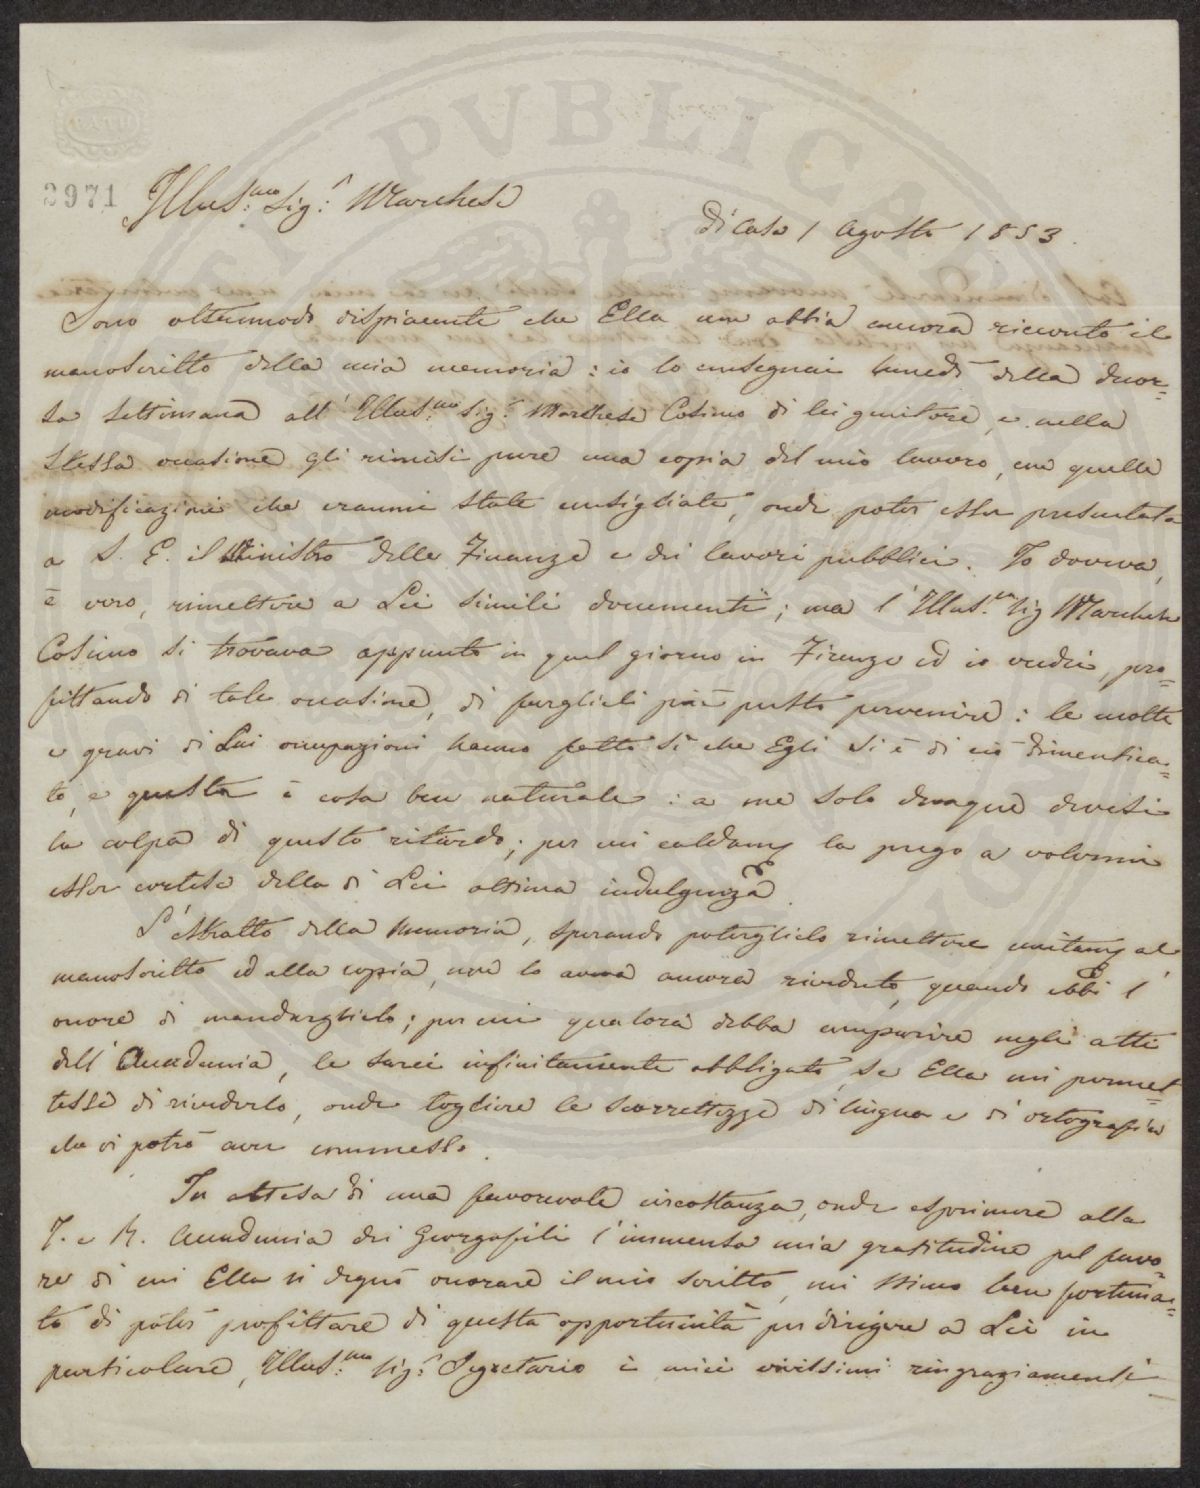 BATH
PVBLICAE
2971
Illus.mo Sig.r Marchese
Di Casa 1 Agosto 1853.
Sono oltremodo dispiacente che Ella non abbia ancora ricevuto il
manoscritto della mia memoria: io lo consegnai lunedì della decor=
sa settimana all' Illus.mo Sig.r Marchese Cosimo di lei genitore, e nella
stessa occasione gli rimisi pure una copia del mio lavoro, con quelle
modificazioni che eranmi state consigliate, onde poter esser presentata
a S. E. il Ministro delle Finanze e dei lavori pubblici. Io doveva,
è vero, rimettere a Lei simili documenti; ma l'Illus.mo Sig Marchese
Cosimo si trovava appunto in quel giorno in Firenze ed io credei, pro=
fittando di tale occasione, di farglieli più presto pervenire: le molte
e gravi di Lui occupazioni hanno fatto sì che Egli si è di ciò dimentica=
to, e questa è cosa ben naturale: a me solo dunque devesi
la colpa di questo ritardo; per cui caldam.e la prego a volermi
esser cortese della di Lei altima indulgenza.
L'estratto della Memoria, sperando poterglielo rimettere unitam.e al
manoscritto ed alla copia, non lo aveva ancora riveduto, quando ebbi l'
onore di mandarglielo; per cui qualora debba comparire negli atti
dell' Accademia, le sarei infinitamente obbligato, se Ella mi permet=
tesse di rivederlo, onde togliere le scorrettezze di lingua e di ortografia
che vi potrò aver commesso.
In attesa di una favorevole circostanza, onde esprimere alla
I. e R. Accademia dei Georgofili l'immensa mia gratitudine pel favo=
re di cui Ella si degnò onorare il mio scritto, mi stimo ben fortuna=
to di poter profittare di questa opportunità per dirigere a Lei in
particolare, Illus.mo Sig.r Segretario i miei vivissimi ringraziamenti